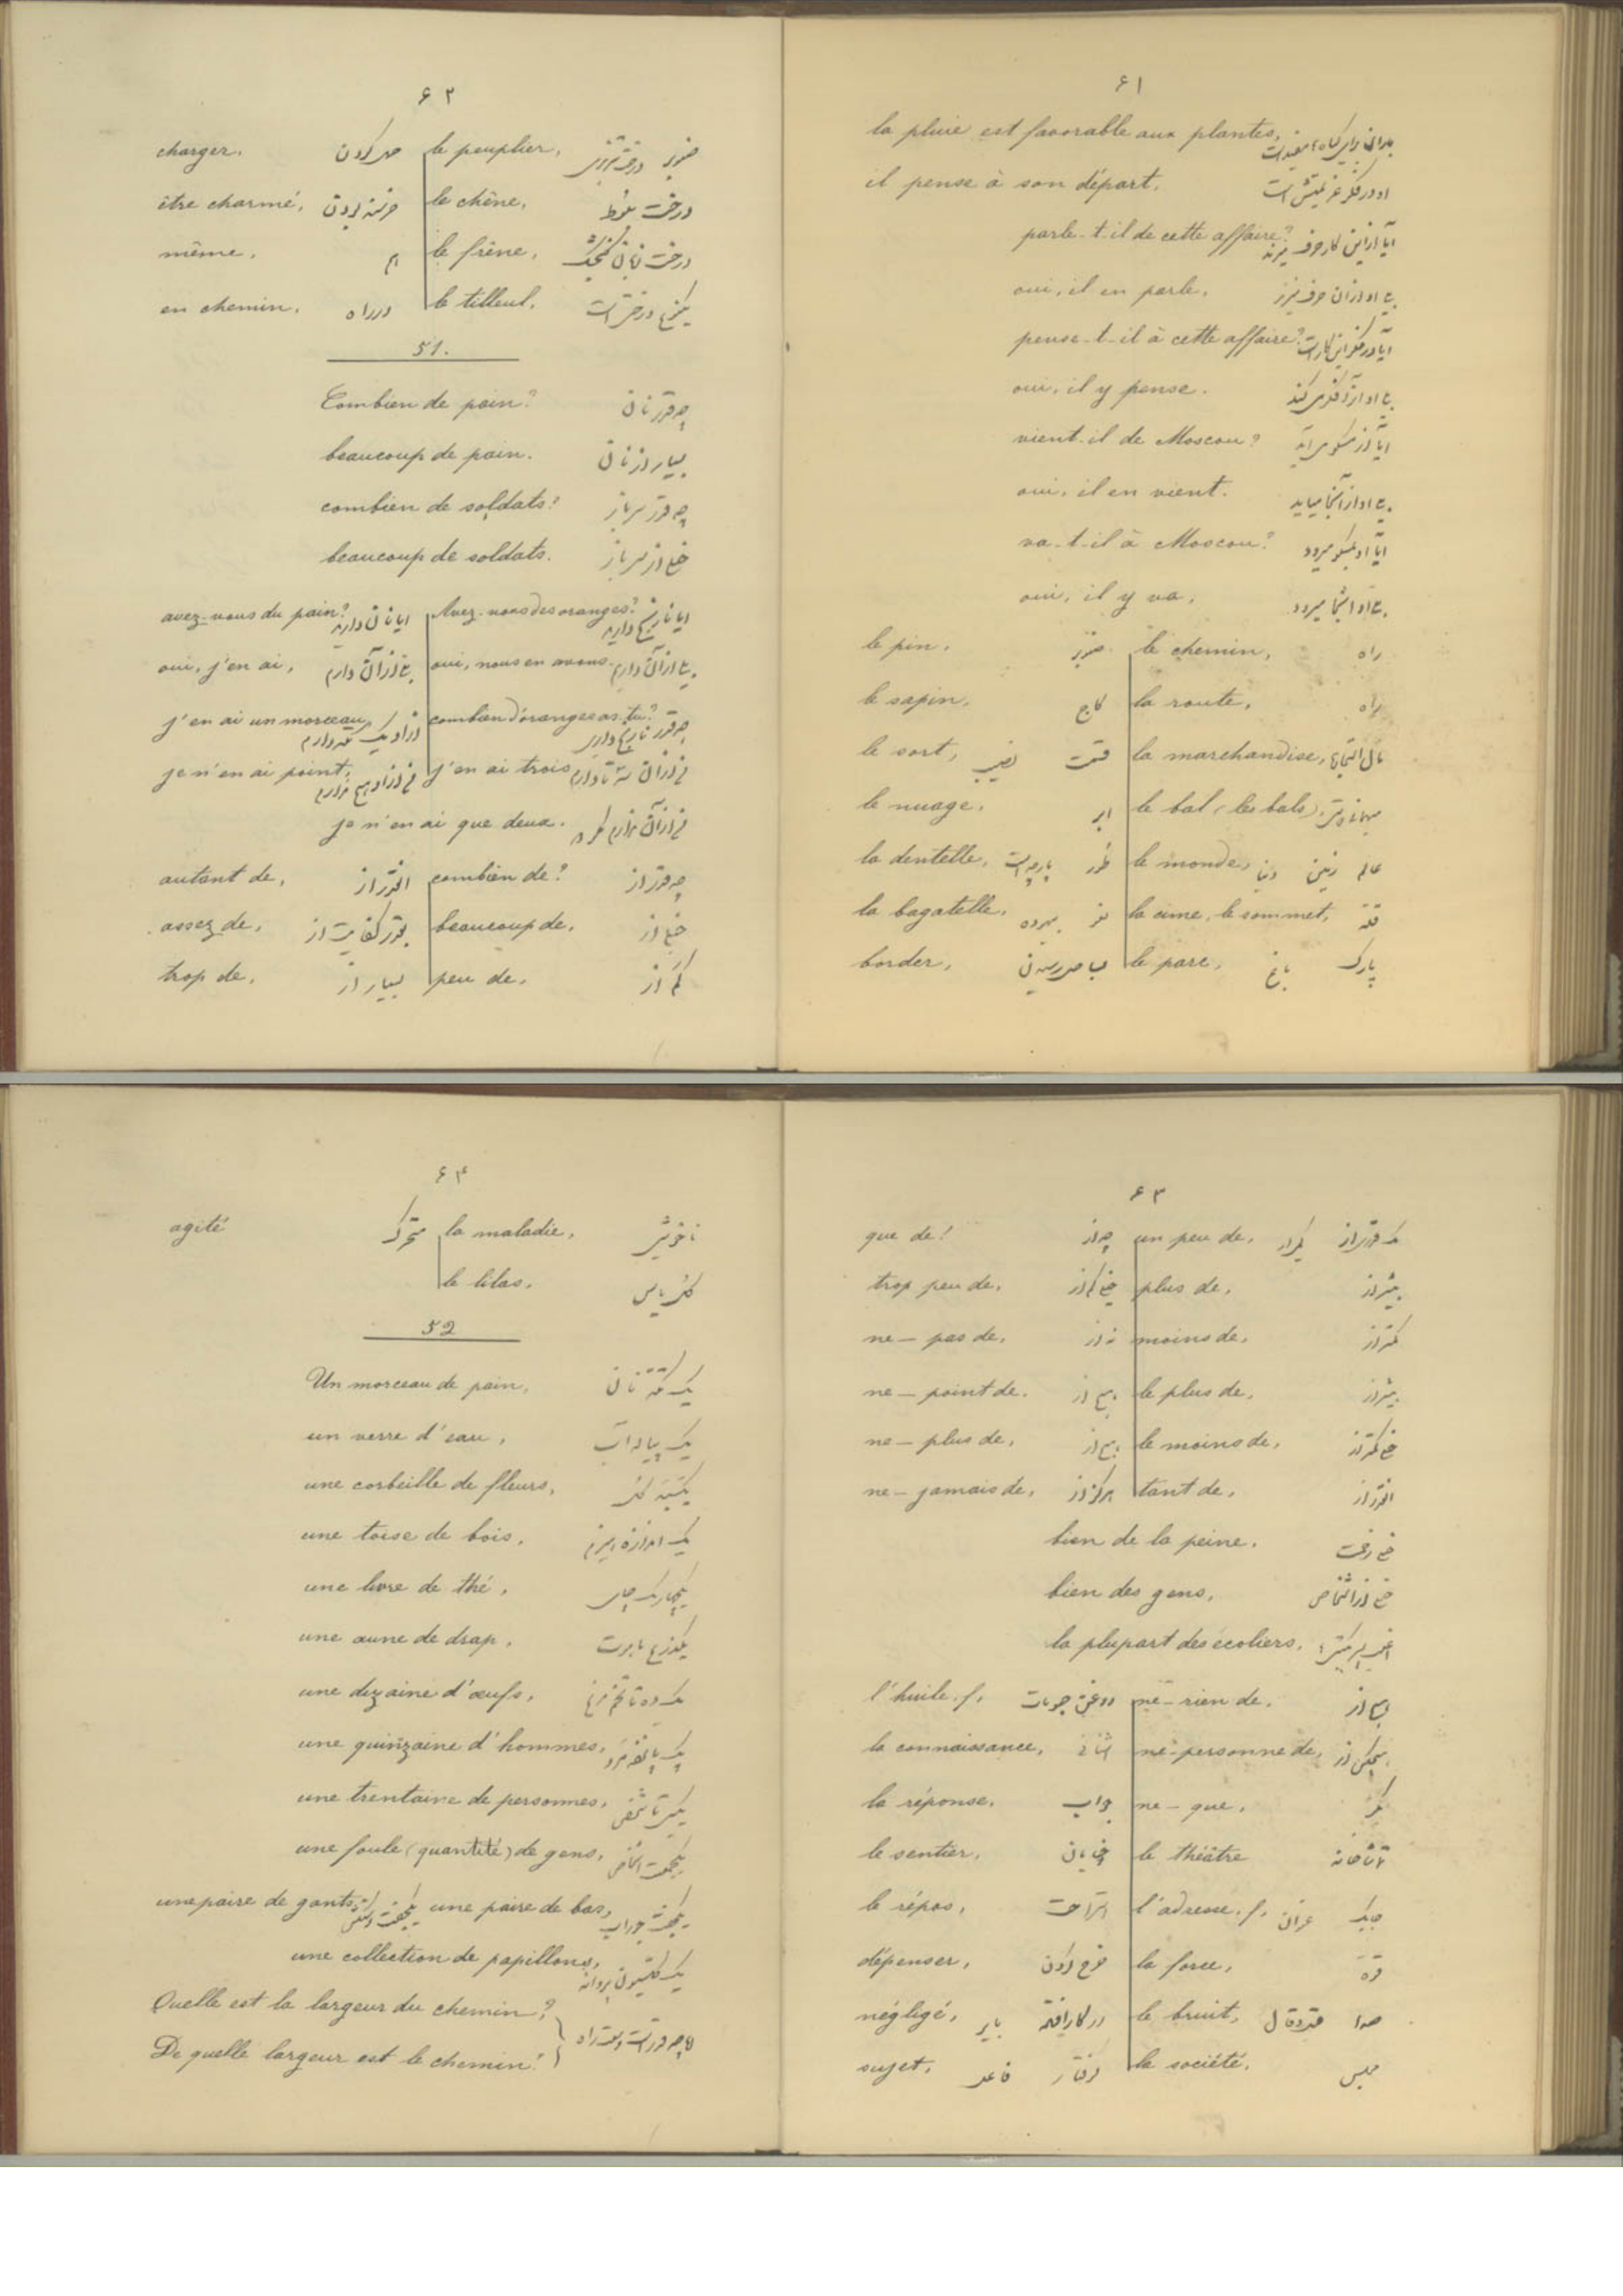 ۶۱
la pluie est favorable aux plantes,
il pense à son départ. او در فکر عزیمتش است
parle-t-il de cette affaire? آیا از این کار حرف میزند
oui, il en parle. بلی او از آن حرف میزند
pense-t-il à cette affaire? آیا در فکر این کار است
oui, il y pense.
vient-il de Moscou? آیا از مسکو می آید
oui, il en vient. بلی او از آنجا میاید
va-t-il à Moscou? آیا او بمسکو میرود
oui, il y va, بلی او آنجا میرود
le pin, صنوبر le chemin, راه
le sapin, کاج la route, راه
le sort, نصیب قسمت la marchandise, مال التجاره
le nuage, ابر le bal (les bals)
la dentelle, le monde, دنیا زمین عالم
la bagatelle, la cime, le sommet, قله
border, le parc, باغ پارک
۶۲
charger, حمل کردن le peuplier, صنوبر درخت تبریزی
être charmé, le chêne, درخت بلوط
même, هم le frêne, درخت زبان گنجشک
en chemin, در راه le tilleul, یکنوع درختی است
51.
Combien de pain? چه قدر نان
beaucoup de pain. بسیار از نان
combien de soldats? چه قدر سرباز
beaucoup de soldats. خیلی از سرباز
avez-vous du pain? ایا نان دارید Avez-vous des oranges? ایا نارنج دارید
oui, j'en ai, بلی از آن دارم oui, nous en avons. بلی از آن داریم
j'en ai un morceau, از او یک تکه دارم combien d'oranges as-tu? چه قدر نارنج داری
je n'en ai point, من از او هیچ ندارم j'en ai trois, من از آن سه تا دارم
je n'en ai que deux.
autant de, انقدر از combien de? چه قدر از
assez de, بقدر کفایت از beaucoup de, خیلی از
trop de, بسیار از peu de, کم از
۶۳
que de! چه از un peu de,
trop peu de, خیلی کم از plus de, بیشتر از
ne — pas de, نه از moins de, کمتر از
ne — point de. هیچ از le plus de, بیشتر از
ne — plus de, هیچ از le moins de, خیلی کمتر از
ne — jamais de, هرگز از tant de, انقدر از
bien de la peine. خیلی زحمت
bien des gens, خیلی از اشخاص
la plupart des écoliers,
l'huile, f, ne — rien de, هیچ از
la connaissance, ne — personne de, هیچکس از
la réponse, جواب ne — que,
le sentier, خیابان le théâtre تماشاخانه
le répos, استراحت l'adresse, f, عنوان
dépenser, خرج کردن la force, قوة
négligé, le bruit, صدا
sujet, la société, مجلس
۶۴
agité متحرک la maladie, ناخوشی
le lilas, گل یاس
52
Un morceau de pain, یک تکه نان
un verre d'eau, یک پیاله آب
une corbeille de fleurs, یکسبد گل
une toise de bois, یک اندازه هیزم
une livre de thé, یکچارک چای
une aune de drap, یکذرع ماهوت
une dizaine d'œufs, یک ده تا تخم مرغ
une quinzaine d'hommes, یک پانزده مرد
une trentaine de personnes, یک سی تا شخص
une foule (quantité) de gens,
une paire de gants, یکجفت دستکش une paire de bas, یکجفت جوراب
une collection de papillons, یک کلکسیون پروانه
Quelle est la largeur du chemin?
De quelle largeur est le chemin?